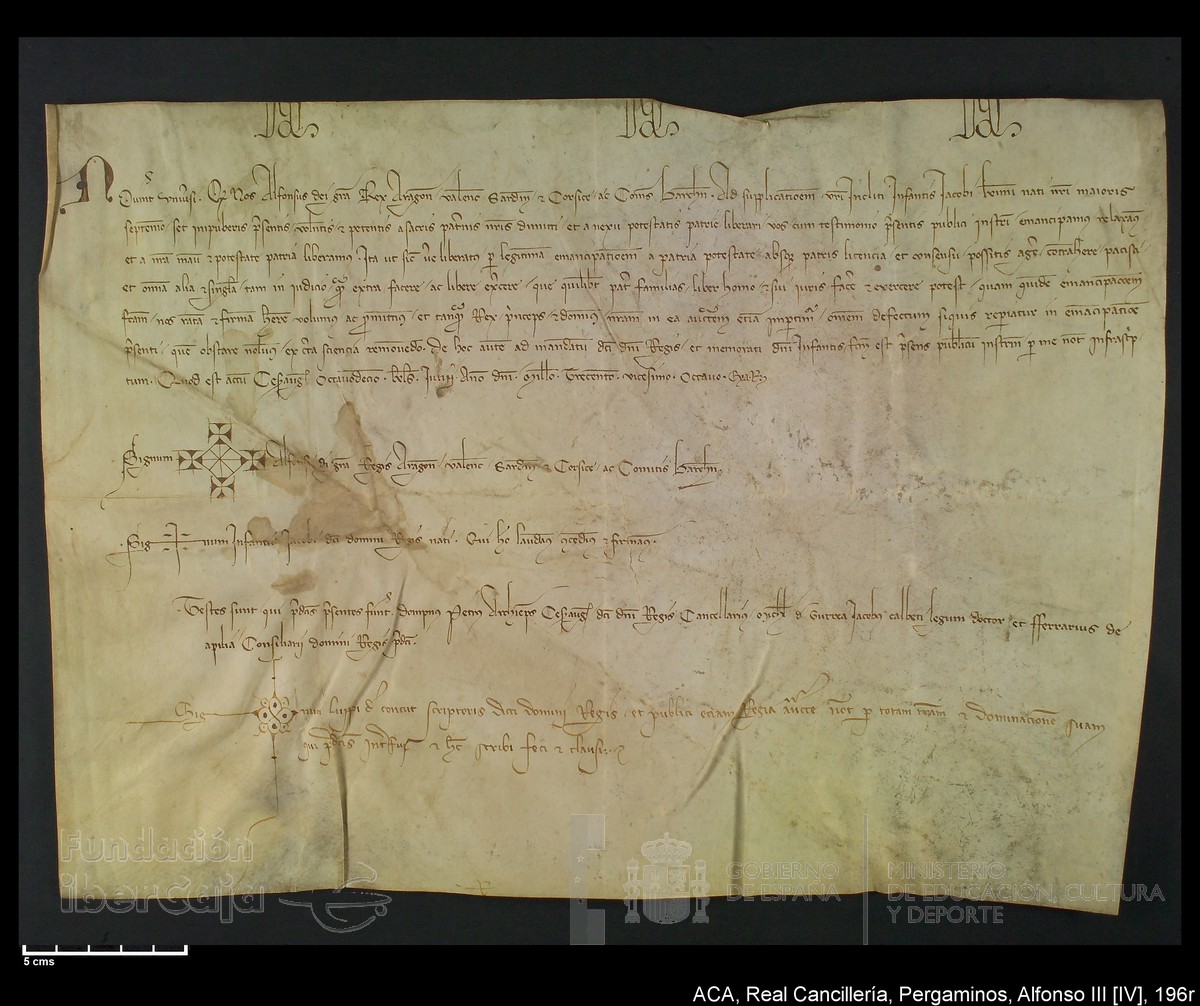 Noverint universi. Q Nos Alfonsus dei gra Rex Aragon. valenc. Sardin. & Corsice. ac Comes Barchn. Ad supplicationem vri Incliti Infantis Jacobi nati nri maioris
septennio set impuberis presentis volentis & petentis a sacris paternis nris dimitti et a nexu potestatis patrie liberari vos cum testimonio presentis publici instri emancipamus relaxamus
et a nra manu & potestate patria liberamus. Ita ut sic liberato per legitimam emancipationem a patria potestate absque patris licencia et consensu possitis agere contrahere pacisci
et omnia alia & singula tam in iudicio quam extra facere ac libere exercere que quilibet pater familias liber homo & sui iuris facere & exercere potest. quam quidem emancipacionem
ratam & firmam habere volumus ac promittimus. et tamquam Rex princeps & dominus nram in ea auctoritatem eciam impertimur. omnem defectum siquis reperiatur in emancipatione
presenti. quem obstare nolumus ex certa sciencia removendo. De hoc autem ad mandatum dci dni Regis. et memorati dni Infantis. est presens publicum instrm per me not infrascrip
tum. Quod est actum Cesaraug. Octavodecimo. kls. Anno dni. Millo. Trecento. vicesimo. Octavo.
Signum Alfonsi di gra Regis Aragon. valenc. Sardin. & Corsice. ac Comitis Barchn.
Sig num Infantis Jacobi dci domini Regis nati. Qui hec laudamus concedimus & firmamus.
Testes sunt qui predictis presentes fuerunt. dompnus Petrus Archieps Cesaraug. dci dni Regis Cancellarius. de Gurrea Jacobus calbeti legum doctor et fferrarius de
apilia Consiliarii domini Regis pdci.
Sig num Luppi de concut scriptoris dicti domini Regis. et publici eciam Regia aucte not per totam terram & dominacionem suam
qui pdcis interfui & hec scribi feci & clausi.
Fundación
iberCaja
GOBIERNO
DE ESPAÑA
MINISTERIO
DE EDUCACIÓN, CULTURA
Y DEPORTE
5 cms
ACA, Real Cancillería, Pergaminos, Alfonso III [IV], 196r